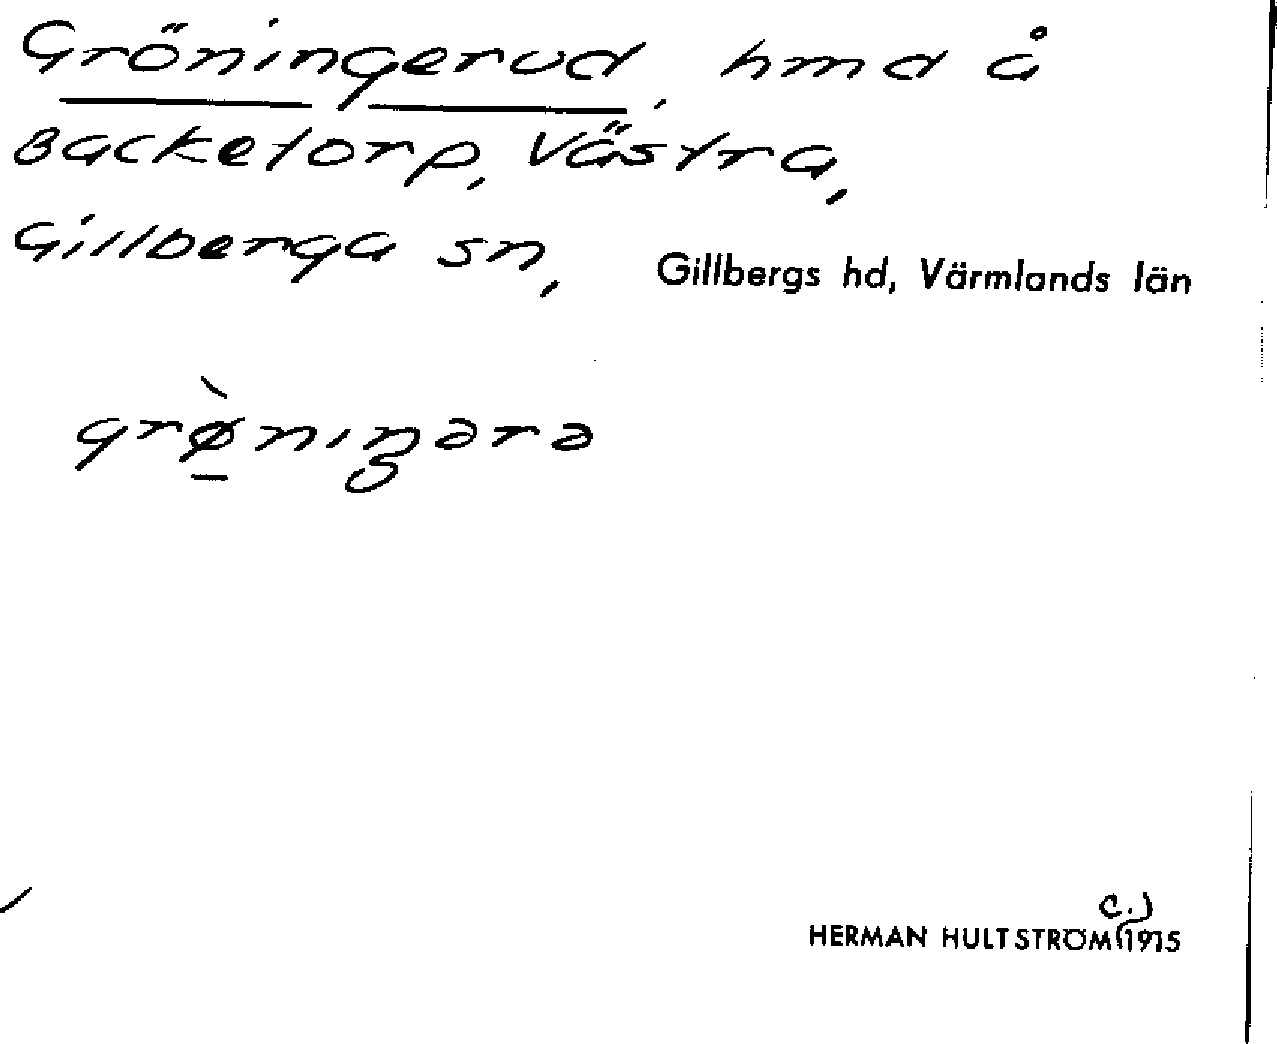 Gröningerud, hmd å
Backetorp, Västra,
Gillberga sn, Gillbergs hd, Värmlands län
grø̱̀niŋərə
c.)
HERMAN HULTSTRÖM 1915